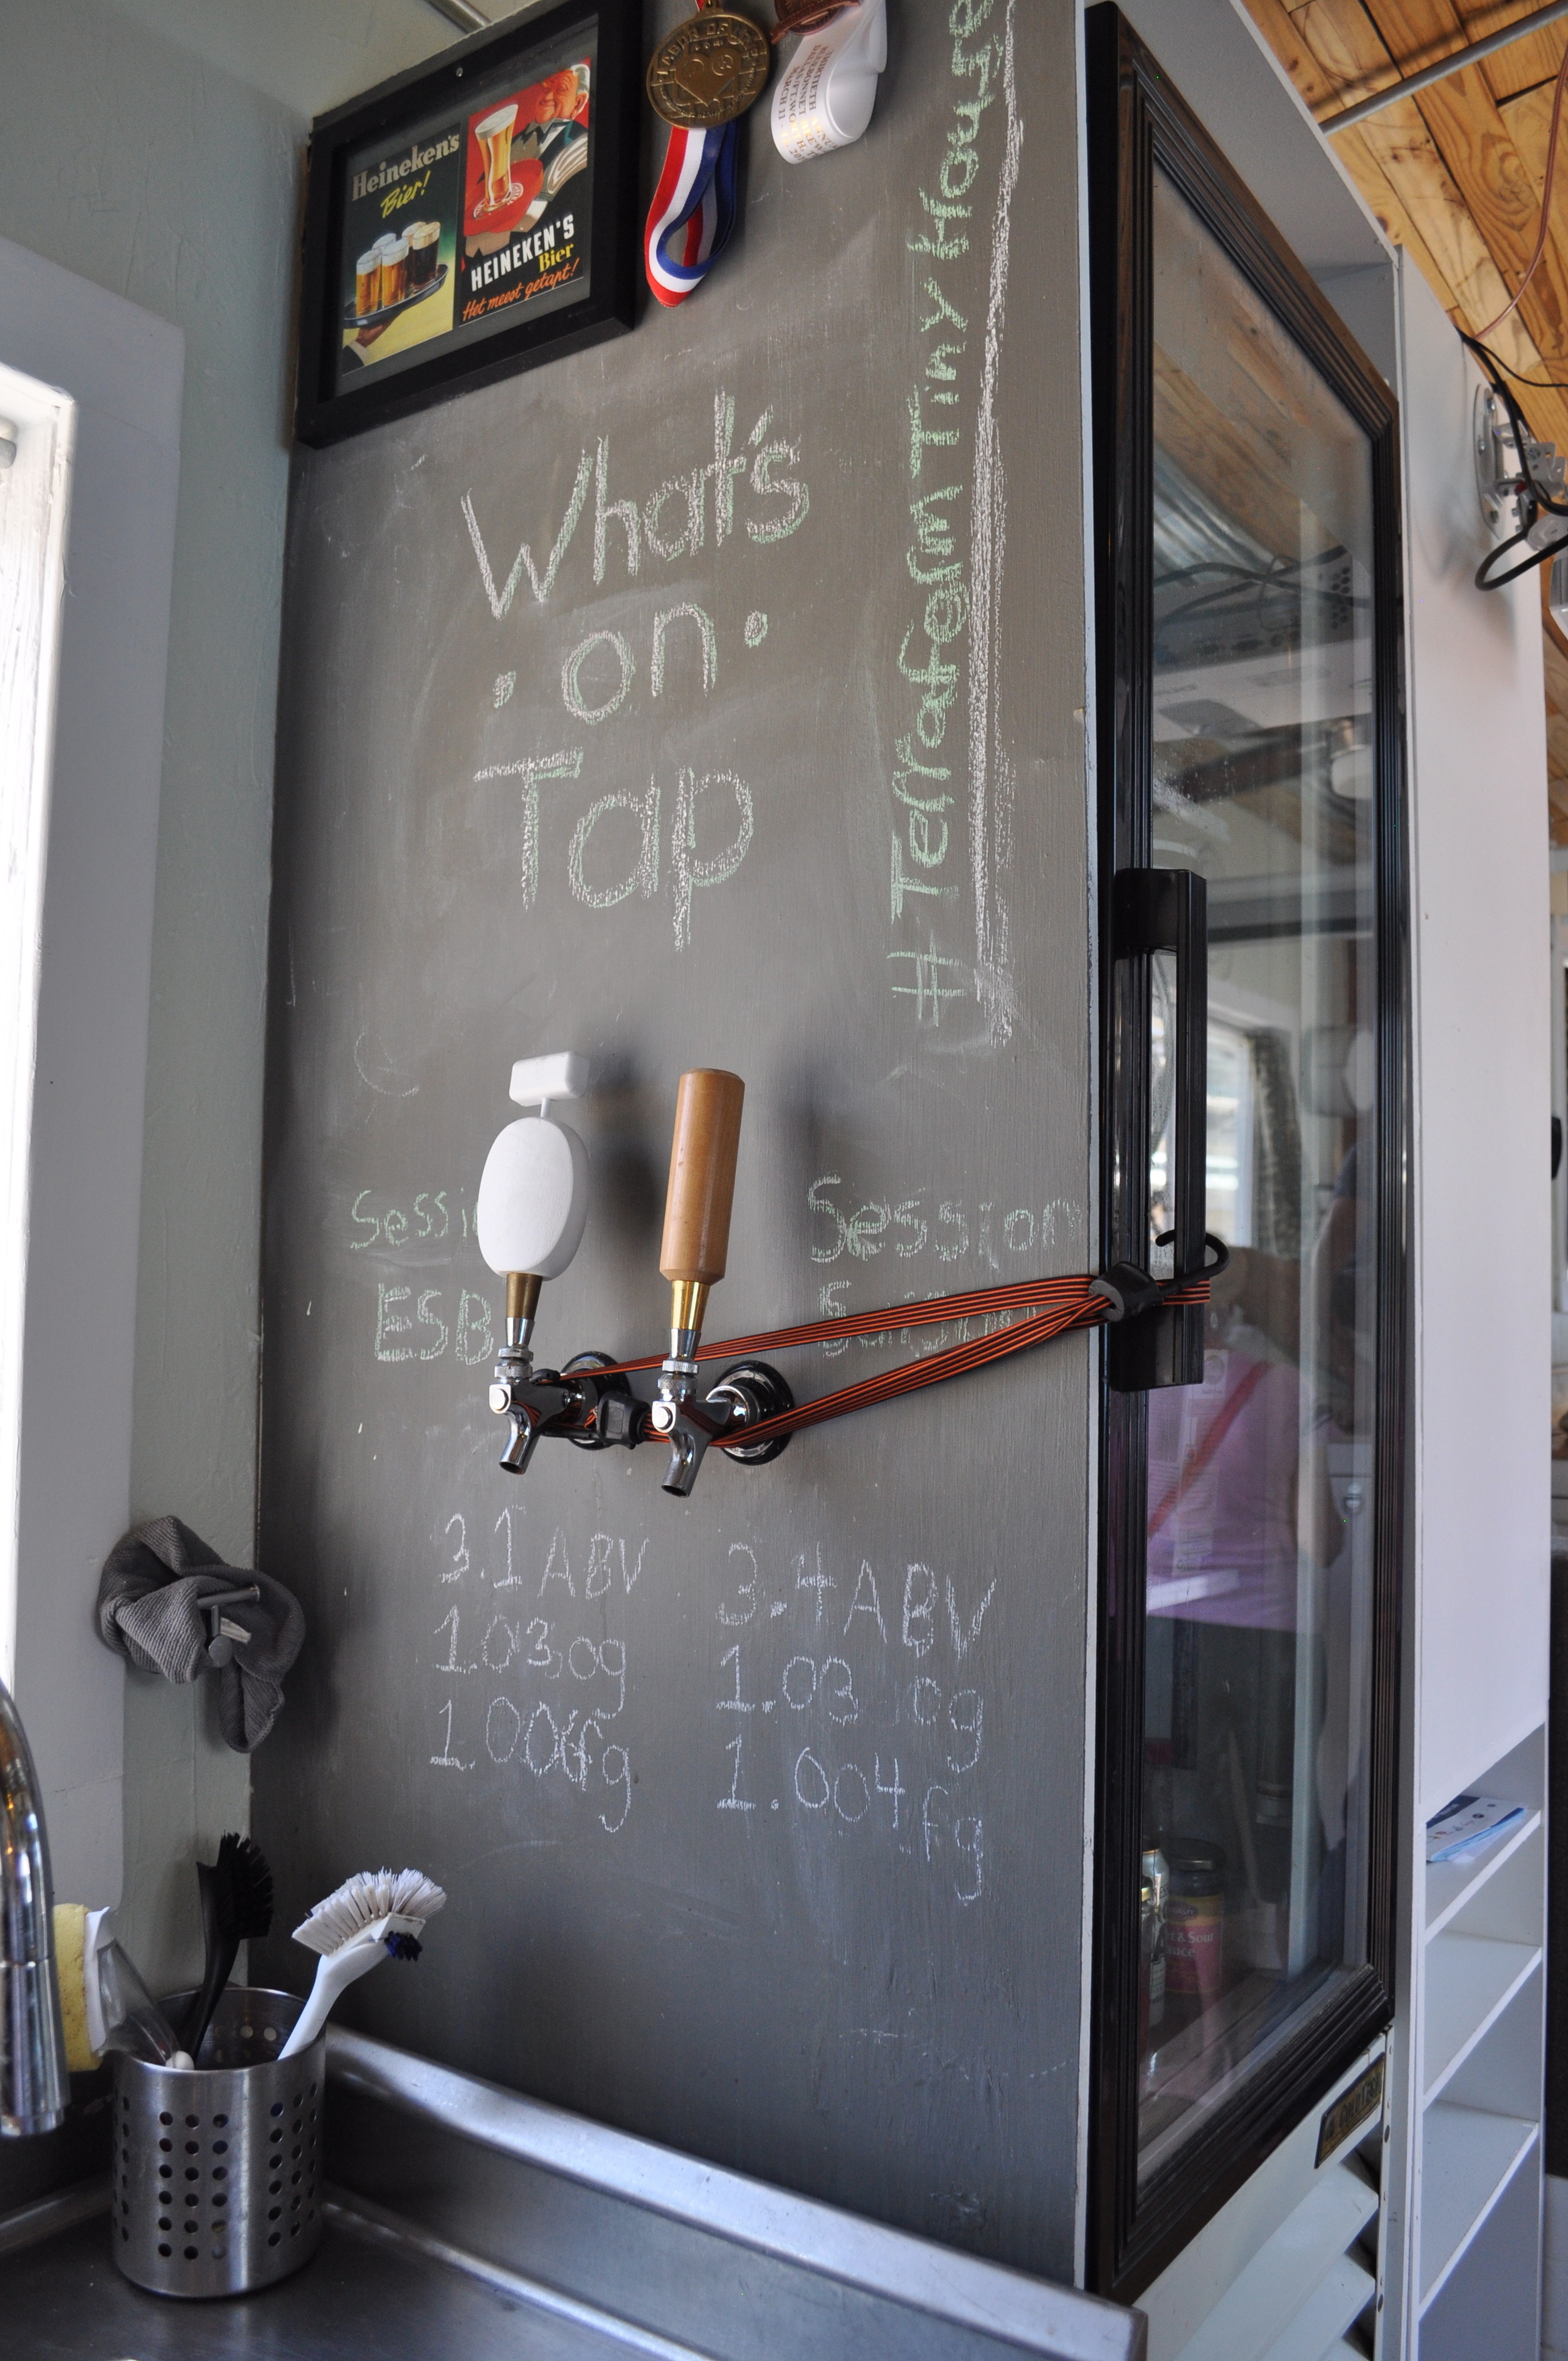 Heineken's
Bier!
HEINEKEN'S
Bier
Het meest getapt!
#Terraform Tiny House
What's
on
Tap
ESB
Session
3.1 ABV
1.03 og
fg
3.4 ABV
1.03 og
1.004 fg
& Sour